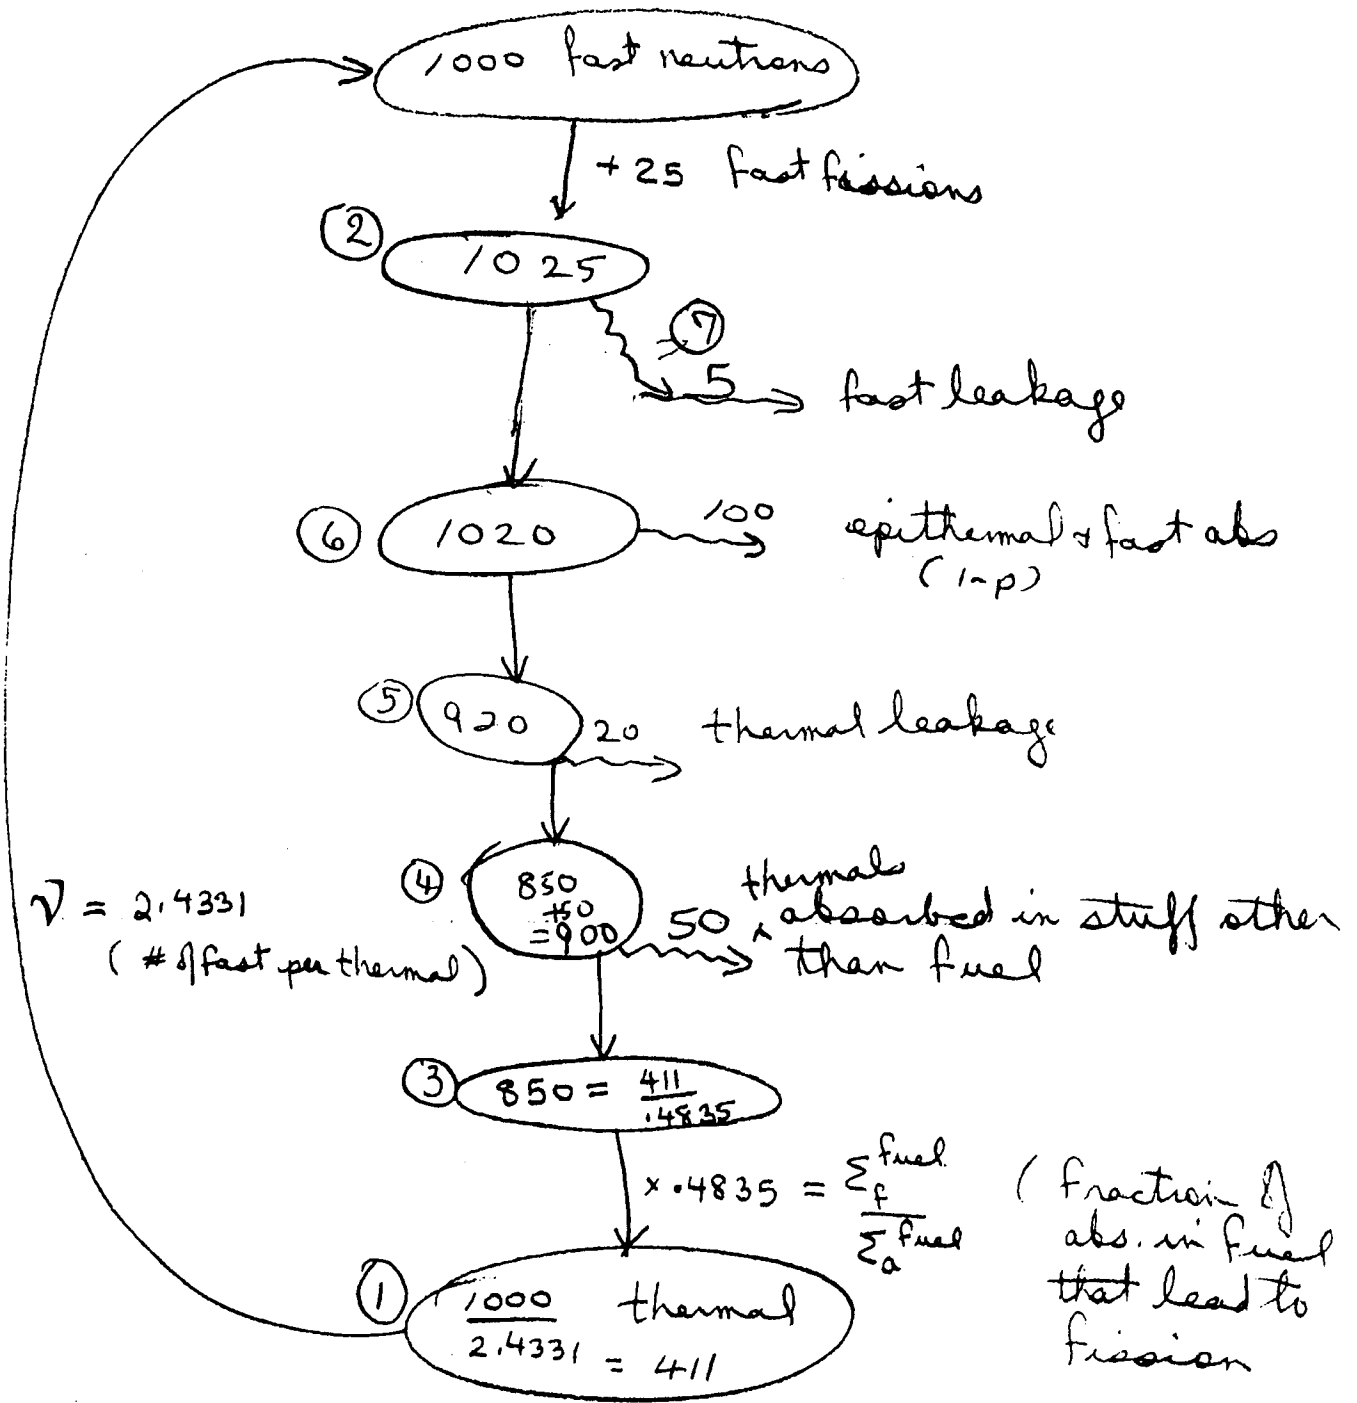 1000 fast neutrons
+ 25 fast fissions
②
1025
⑦
5
fast leakage
⑥
1020
100
epithermal & fast abs
(1-p)
⑤
920
20
thermal leakage
④
850
+50
=900
50
thermals
absorbed in stuff other
than fuel
ν = 2.4331
(# of fast per thermal)
③
850 = 411
.4835
× .4835 = Σf fuel
Σa fuel
( Fraction of
abs. in fuel
that lead to
fission
①
1000 thermal
2.4331 = 411